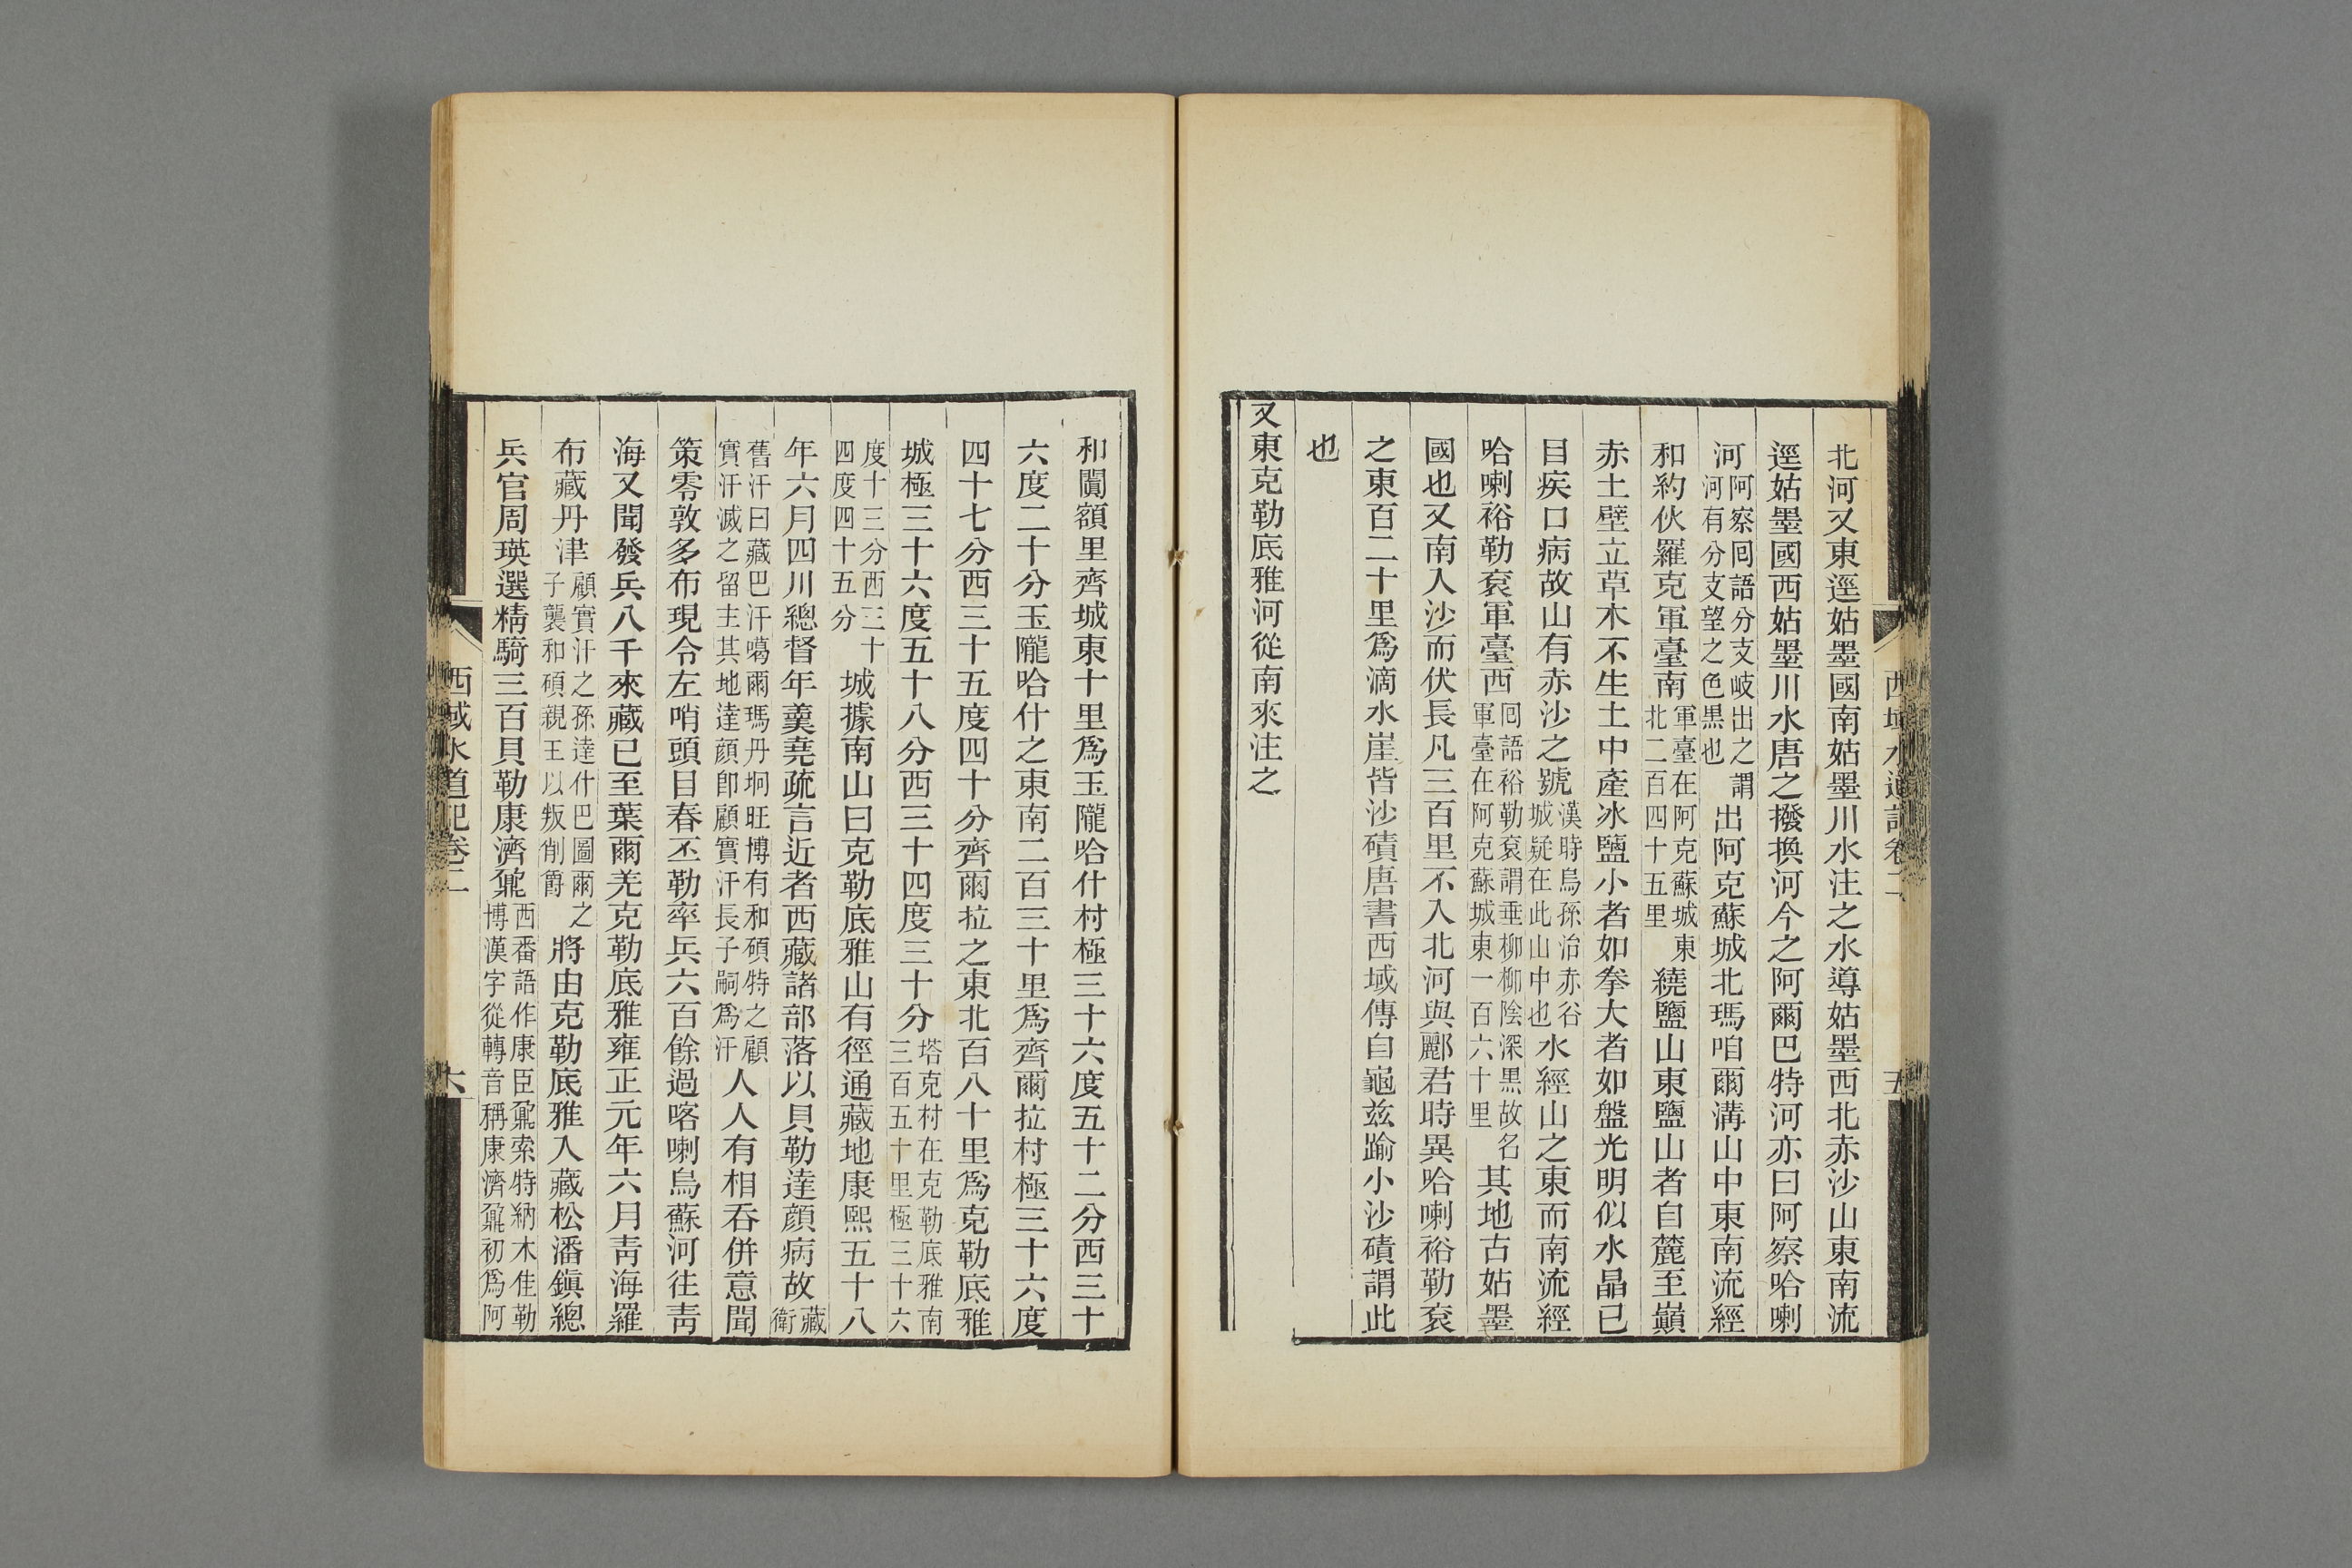 西域水道記卷二 五
北河又東逕姑墨國南姑墨川水注之水導姑墨西北赤沙山東南流
逕姑墨國西姑墨川水唐之撥換河今之阿爾巴特河亦曰阿察哈喇
河阿察囘語分支岐出之謂河有分支望之色黒也出阿克蘇城北瑪咱爾溝山中東南流經
和約伙羅克軍臺南軍臺在阿克蘇城東北二百四十五里繞鹽山東鹽山者自麓至巔
赤土壁立草木不生土中產冰鹽小者如拳大者如盤光明似水晶已
目疾口病故山有赤沙之號漢時烏孫治赤谷城疑在此山中也水經山之東而南流經
哈喇裕勒袞軍臺西囘語裕勒袞謂垂柳柳陰深黒故名軍臺在阿克蘇城東一百六十里其地古姑墨
國也又南入沙而伏長凡三百里不入北河與酈君時異哈喇裕勒袞
之東百二十里爲滴水崖皆沙磧唐書西域傳自龜茲踰小沙磧謂此
也
又東克勒底雅河從南來注之
和闐額里齊城東十里爲玉隴哈什村極三十六度五十二分西三十
六度二十分玉隴哈什之東南二百三十里爲齊爾拉村極三十六度
四十七分西三十五度四十分齊爾拉之東北百八十里爲克勒底雅
城極三十六度五十八分西三十四度三十分塔克村在克勒底雅南三百五十里極三十六
度十三分西三十四度四十五分城據南山曰克勒底雅山有徑通藏地康熙五十八
年六月四川總督年羹堯疏言近者西藏諸部落以貝勒達顏病故藏衛
舊汗曰藏巴汗噶爾瑪丹坰旺博有和碩特之顧實汗滅之留主其地達顏卽顧實汗長子嗣爲汗人人有相吞併意聞
策零敦多布現令左哨頭目春丕勒率兵六百餘過喀喇烏蘇河往青
海又聞發兵八千來藏已至葉爾羌克勒底雅雍正元年六月青海羅
布藏丹津顧實汗之孫達什巴圖爾之子襲和碩親王以叛削爵將由克勒底雅入藏松潘鎭總
兵官周瑛選精騎三百貝勒康濟鼐西番語作康臣鼐索特納木佳勒博漢字從轉音稱康濟鼐初爲阿
西域水道記卷二 六